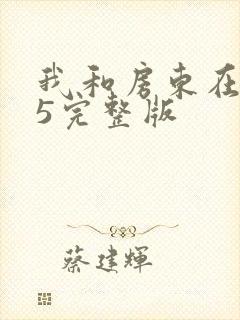 我和房东在
5完整版
蔡建辉